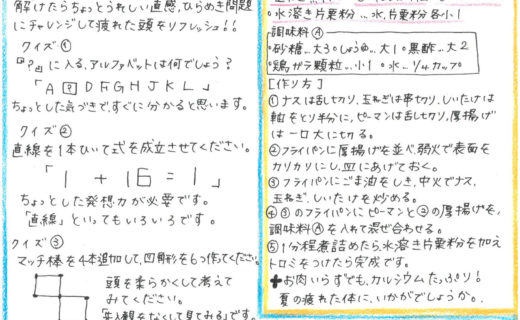 解けたらちょっとうれしい直感、ひらめき問題
にチャレンジして疲れた頭をリフレッシュ!!
クイズ①
『?』に入る、アルファベットは何でしょう?
「A ? D F G H J K L」
ちょっとした気づきで、すぐに分かると思います。
クイズ②
直線を1本ひいて式を成立させてください。
「1 + 16 = 1」
ちょっとした発想力が必要です。
「直線」といってもいろいろです。
クイズ③
マッチ棒を4本追加して、四角形を6つ作ってください。
頭を柔らかくして考えて
みてください。
「先入観をなくして見てみる」です。
○水溶き片栗粉…水,片栗粉各小1
調味料Ⓐ
・砂糖…大3○しょうゆ…大1○黒酢…大2
・鶏ガラ顆粒…小1○水…1/4カップ
[作り方]
①ナスは乱切り、玉ねぎは串切り、しいたけは
軸をとり半分に、ピーマンは乱切り、厚揚げ
は一口大に切る。
②フライパンに厚揚げを並べ、弱火で表面を
カリカリにし、皿にあげておく。
③フライパンにごま油をしき、中火でナス、
玉ねぎ、しいたけを炒める。
④③のフライパンにピーマンと②の厚揚げを、
調味料Ⓐを入れて混ぜ合わせる。
⑤1分程煮詰めたら、水溶き片栗粉を加え
トロミをつけたら完成です。
✚お肉いらずでも、カルシウムたっぷり!
夏の疲れた体に、いかがでしょうか。